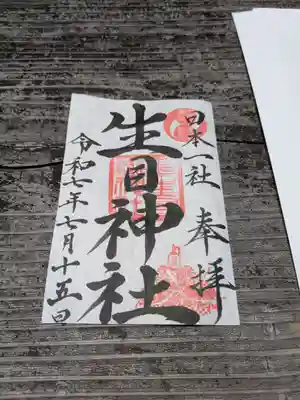 奉拝
日本一社
生目神社
令和七年七月十五日